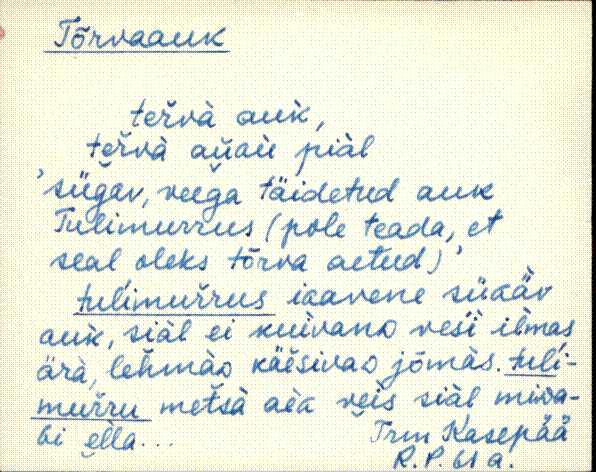 Tõrvaauk
tervà auk,
tervà auau piàl
'sügav, veega täidetud auk
Tulimurrus (pole teada, et
seal oleks tõrva aetud)'
tulimurrus ixavene süxäv
auk, siàl ei kuivano vesi ilmas
ärà, lehmäo käesivao jõmàs. tuli-
murru metsà aèx veis siàl miva-
bi ella...
Trm Kasepää
R.P. 61 a.